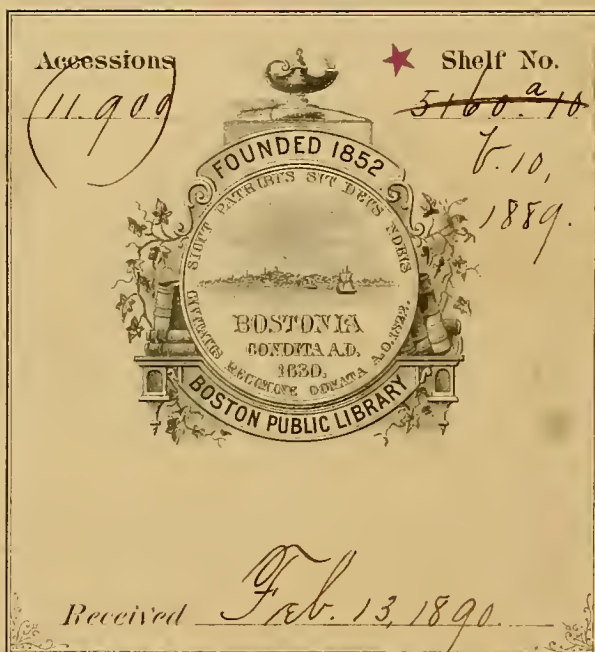 Accessions
11.909
Shelf No.
5160.a 10
V.10,
1889.
FOUNDED 1852
SICUT PATRIBUS SIT DEUS NOBIS
BOSTONIA
CONDITA A.D.
1630.
CIVITATIS REGIMINE DONATA A.D. 1822.
BOSTON PUBLIC LIBRARY
Received Feb. 13, 1890.